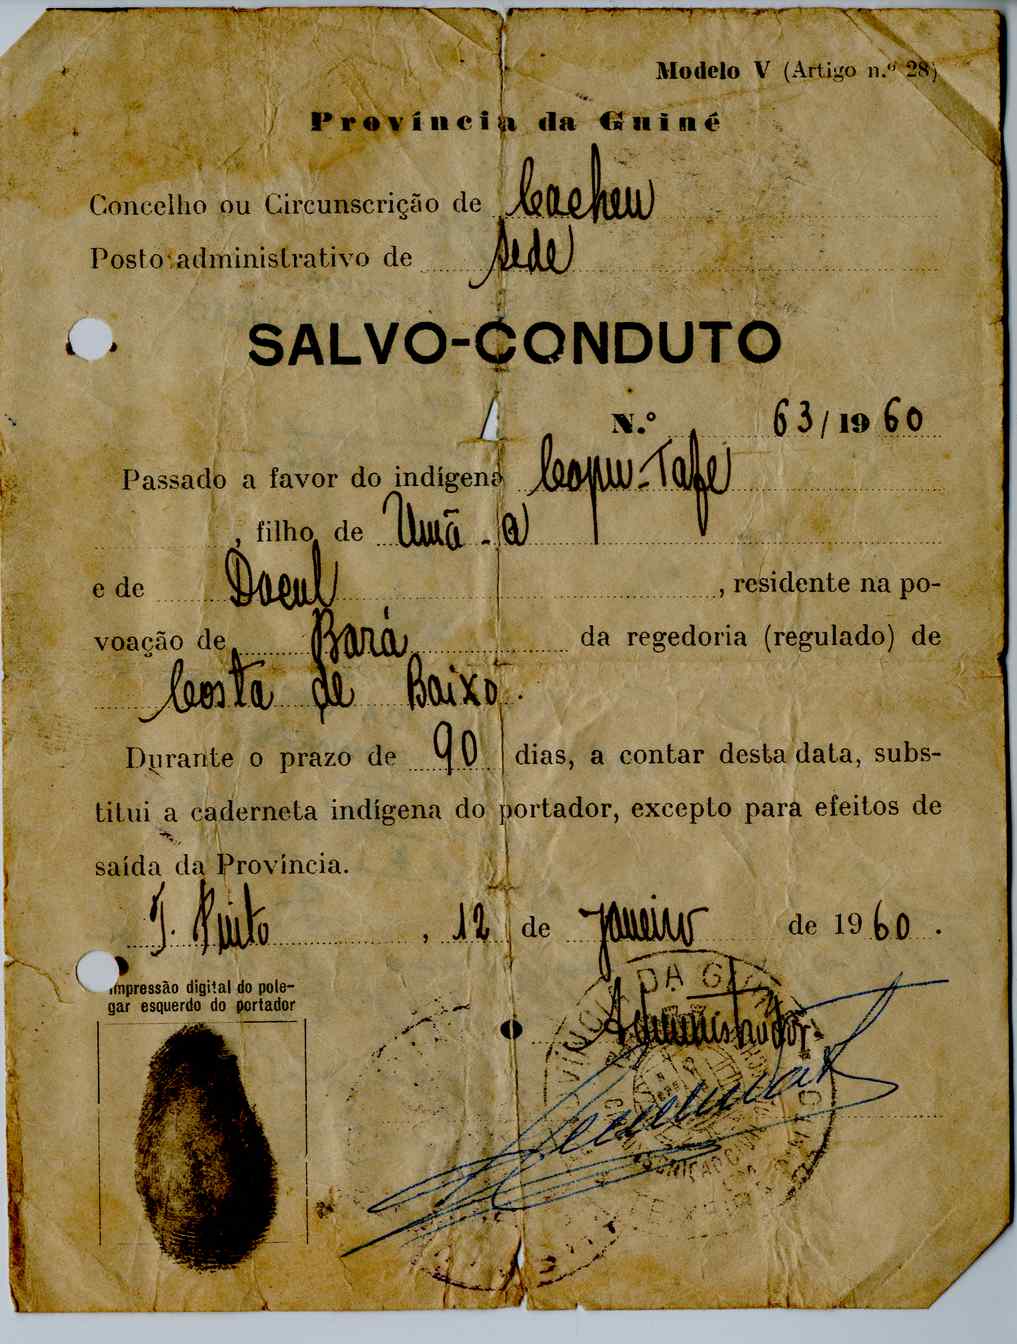 Modelo V (Artigo n.º 28)
Província da Guiné
Concelho ou Circunscrição de Cacheu
Posto administrativo de Sede
SALVO-CONDUTO
N.º 63/1960
Passado a favor do indígena Copu-Tafe
, filho de Umã - a
e de Dacul, residente na po-
voação de Bará da regedoria (regulado) de
Costa de Baixo.
Durante o prazo de 90 dias, a contar desta data, subs-
titui a caderneta indígena do portador, excepto para efeitos de
saída da Província.
T. Pinto, 12 de janeiro de 1960.
Impressão digital do pole-
gar esquerdo do portador
O Administrador
DA GUINÉ